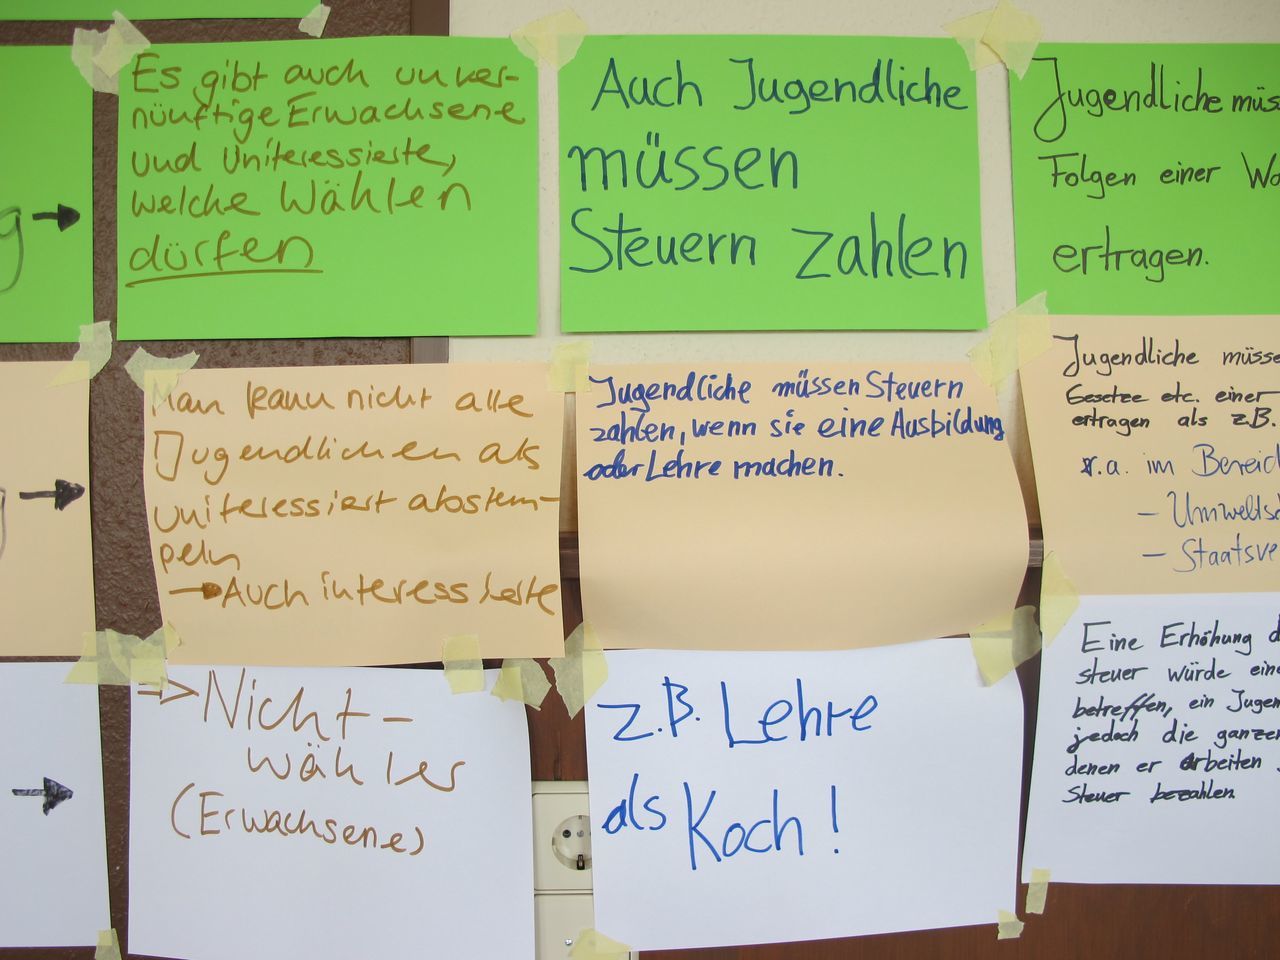 Es gibt auch unver-
nünftige Erwachsene
und Uniteressierte,
welche Wählen
dürfen
Auch Jugendliche
müssen
Steuern zahlen
Jugendliche müss
Folgen einer Wa
ertragen.
g
Man kann nicht alle
Jugendlichen als
uniteressiert abstem-
peln
→ Auch interessierte
Jugendliche müssen Steuern
zahlen, wenn sie eine Ausbildung
oder Lehre machen.
Jugendliche müsse
Gesetze etc. einer
ertragen als z.B.
v.a. im Bereic
- Umweltsc
- Staatsve
⇒ Nicht-
wähler
(Erwachsene)
z.B. Lehre
als Koch!
Eine Erhöhung d
steuer würde eine
betreffen, ein Jugen
jedoch die ganzen
denen er arbeiten
Steuer bezahlen.